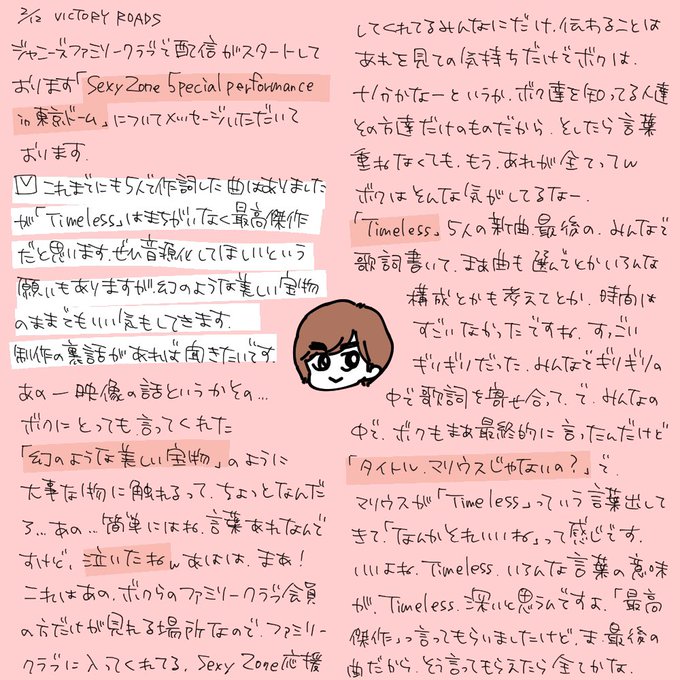 2/12 VICTORY ROADS
ジャニーズファミリークラブで配信がスタートして
おります「Sexy Zone Special performance
in 東京ドーム」についてメッセージいただいて
おります.
これまでにも5人で作詞した曲はありました
が「Timeless」はまちがいなく最高傑作
だと思います.ぜひ音源化してほしいという
願いもありますが幻のような美しい宝物
のままでもいい気もしてきます.
制作の裏話があれば聞きたいです.
あの一映像の話というかその...
ボクにとっても.言ってくれた
「幻のような美しい宝物」のように
大事な物に触れるって.ちょっとなんだ
ろ...あの..簡単にはね.言葉あれなんで
すけど.泣いたねwあはは.まあ!
これはあの.ボクらのファミリークラブ会員
の方だけが見れる場所なので.ファミリー
クラブに入ってくれてる.Sexy Zone応援
してくれてるみんなにだけ.伝わることは
あれを見ての気持ちだけでボクは.
十分かなーというか.ボク達を知ってる人達
その方達だけのものだから.そしたら言葉
重ねなくても.もう.あれが全てってw
ボクはそんな気がしてるなー.
「Timeless」5人の新曲.最後の.みんなで
歌詞書いて.まあ曲も選んでとかいろんな
構成とかも考えてとか.時間は
すごいなかったですね.すっごい
ギリギリだった.みんなでギリギリの
中で歌詞を寄せ合って.で.みんなの
中で.ボクもまあ最終的に言ったんだけど
「タイトル.マリウスじゃないの?」で.
マリウスが「Timeless」っていう言葉出して
きて.「なんかそれいいね」って感じです.
いいよね.Timeless.いろんな言葉の意味
が.Timeless.深いと思うんですよ.「最高
傑作」って言ってもらいましたけど.ま.最後の
曲だから.そう言ってもらえたら全てかな.